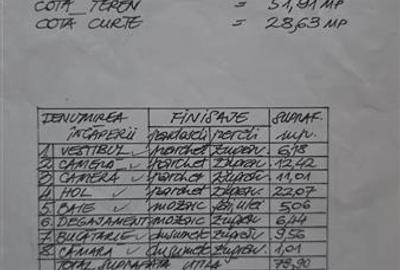 COTA TEREN = 51,91 MP
COTA CURTE = 28,63 MP
DENUMIREA ÎNCĂPERII FINISAJE SUPRAF.
pardoseli pereți m.p.
1 VESTIBUL parchet zugrav. 6,78
2 CAMERĂ parchet zugrav. 12,42
3 CAMERĂ parchet zugrav. 11,01
4 HOL parchet zugrav. 22,07
5 BAIE mozaic 5,06
6 DEGAJAMENT mozaic zugrav 6,44
7 BUCĂTĂRIE dușumele zugrav. 9,56
8 CĂMARA dușumele zugrav. 1,01
TOTAL SUPRAFAȚA UTILĂ